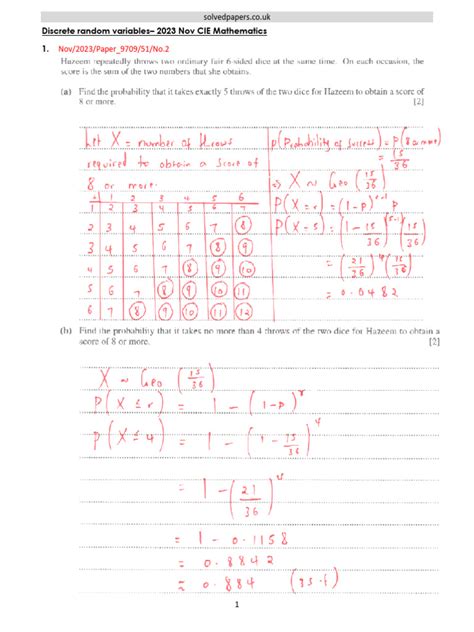 solvedpapers.co.uk
Discrete random variables– 2023 Nov CIE Mathematics
1. Nov/2023/Paper_9709/51/No.2
Hazeem repeatedly throws two ordinary fair 6-sided dice at the same time. On each occasion, the
score is the sum of the two numbers that she obtains.
(a) Find the probability that it takes exactly 5 throws of the two dice for Hazeem to obtain a score of
8 or more. [2]
Let X = number of throws
required to obtain a score of
8 or more.
1 2 3 4 5 6
1 2 3 4 5 6 7
2 3 4 5 6 7 8
3 4 5 6 7 8 9
4 5 6 7 8 9 10
5 6 7 8 9 10 11
6 7 8 9 10 11 12
p (Probability of success) = P(8 or more)
= 15/36
X ~ Geo (15/36)
P(X = r) = (1-p)^(r-1) p
P(X = 5) = (1 - 15/36)^(5-1) (15/36)
= (21/36)^4 (15/36)
= 0.0482
(b) Find the probability that it takes no more than 4 throws of the two dice for Hazeem to obtain a
score of 8 or more. [2]
X ~ Geo (15/36)
P(X ≤ r) = 1 - (1-p)^r
P(X ≤ 4) = 1 - (1 - 15/36)^4
= 1 - (21/36)^4
= 1 - 0.1158
= 0.8842
= 0.884 (3s.f)
1